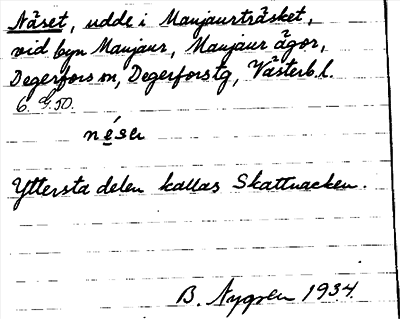 Näset, udde i Manjaurträsket,
vid byn Manjaur, Manjaur ägor,
Degerfors sn, Degerfors tg, Västerb. l.
6. G. 50.
né̱sɐ
Yttersta delen kallas Skattnacken.
B. Nygren 1934.